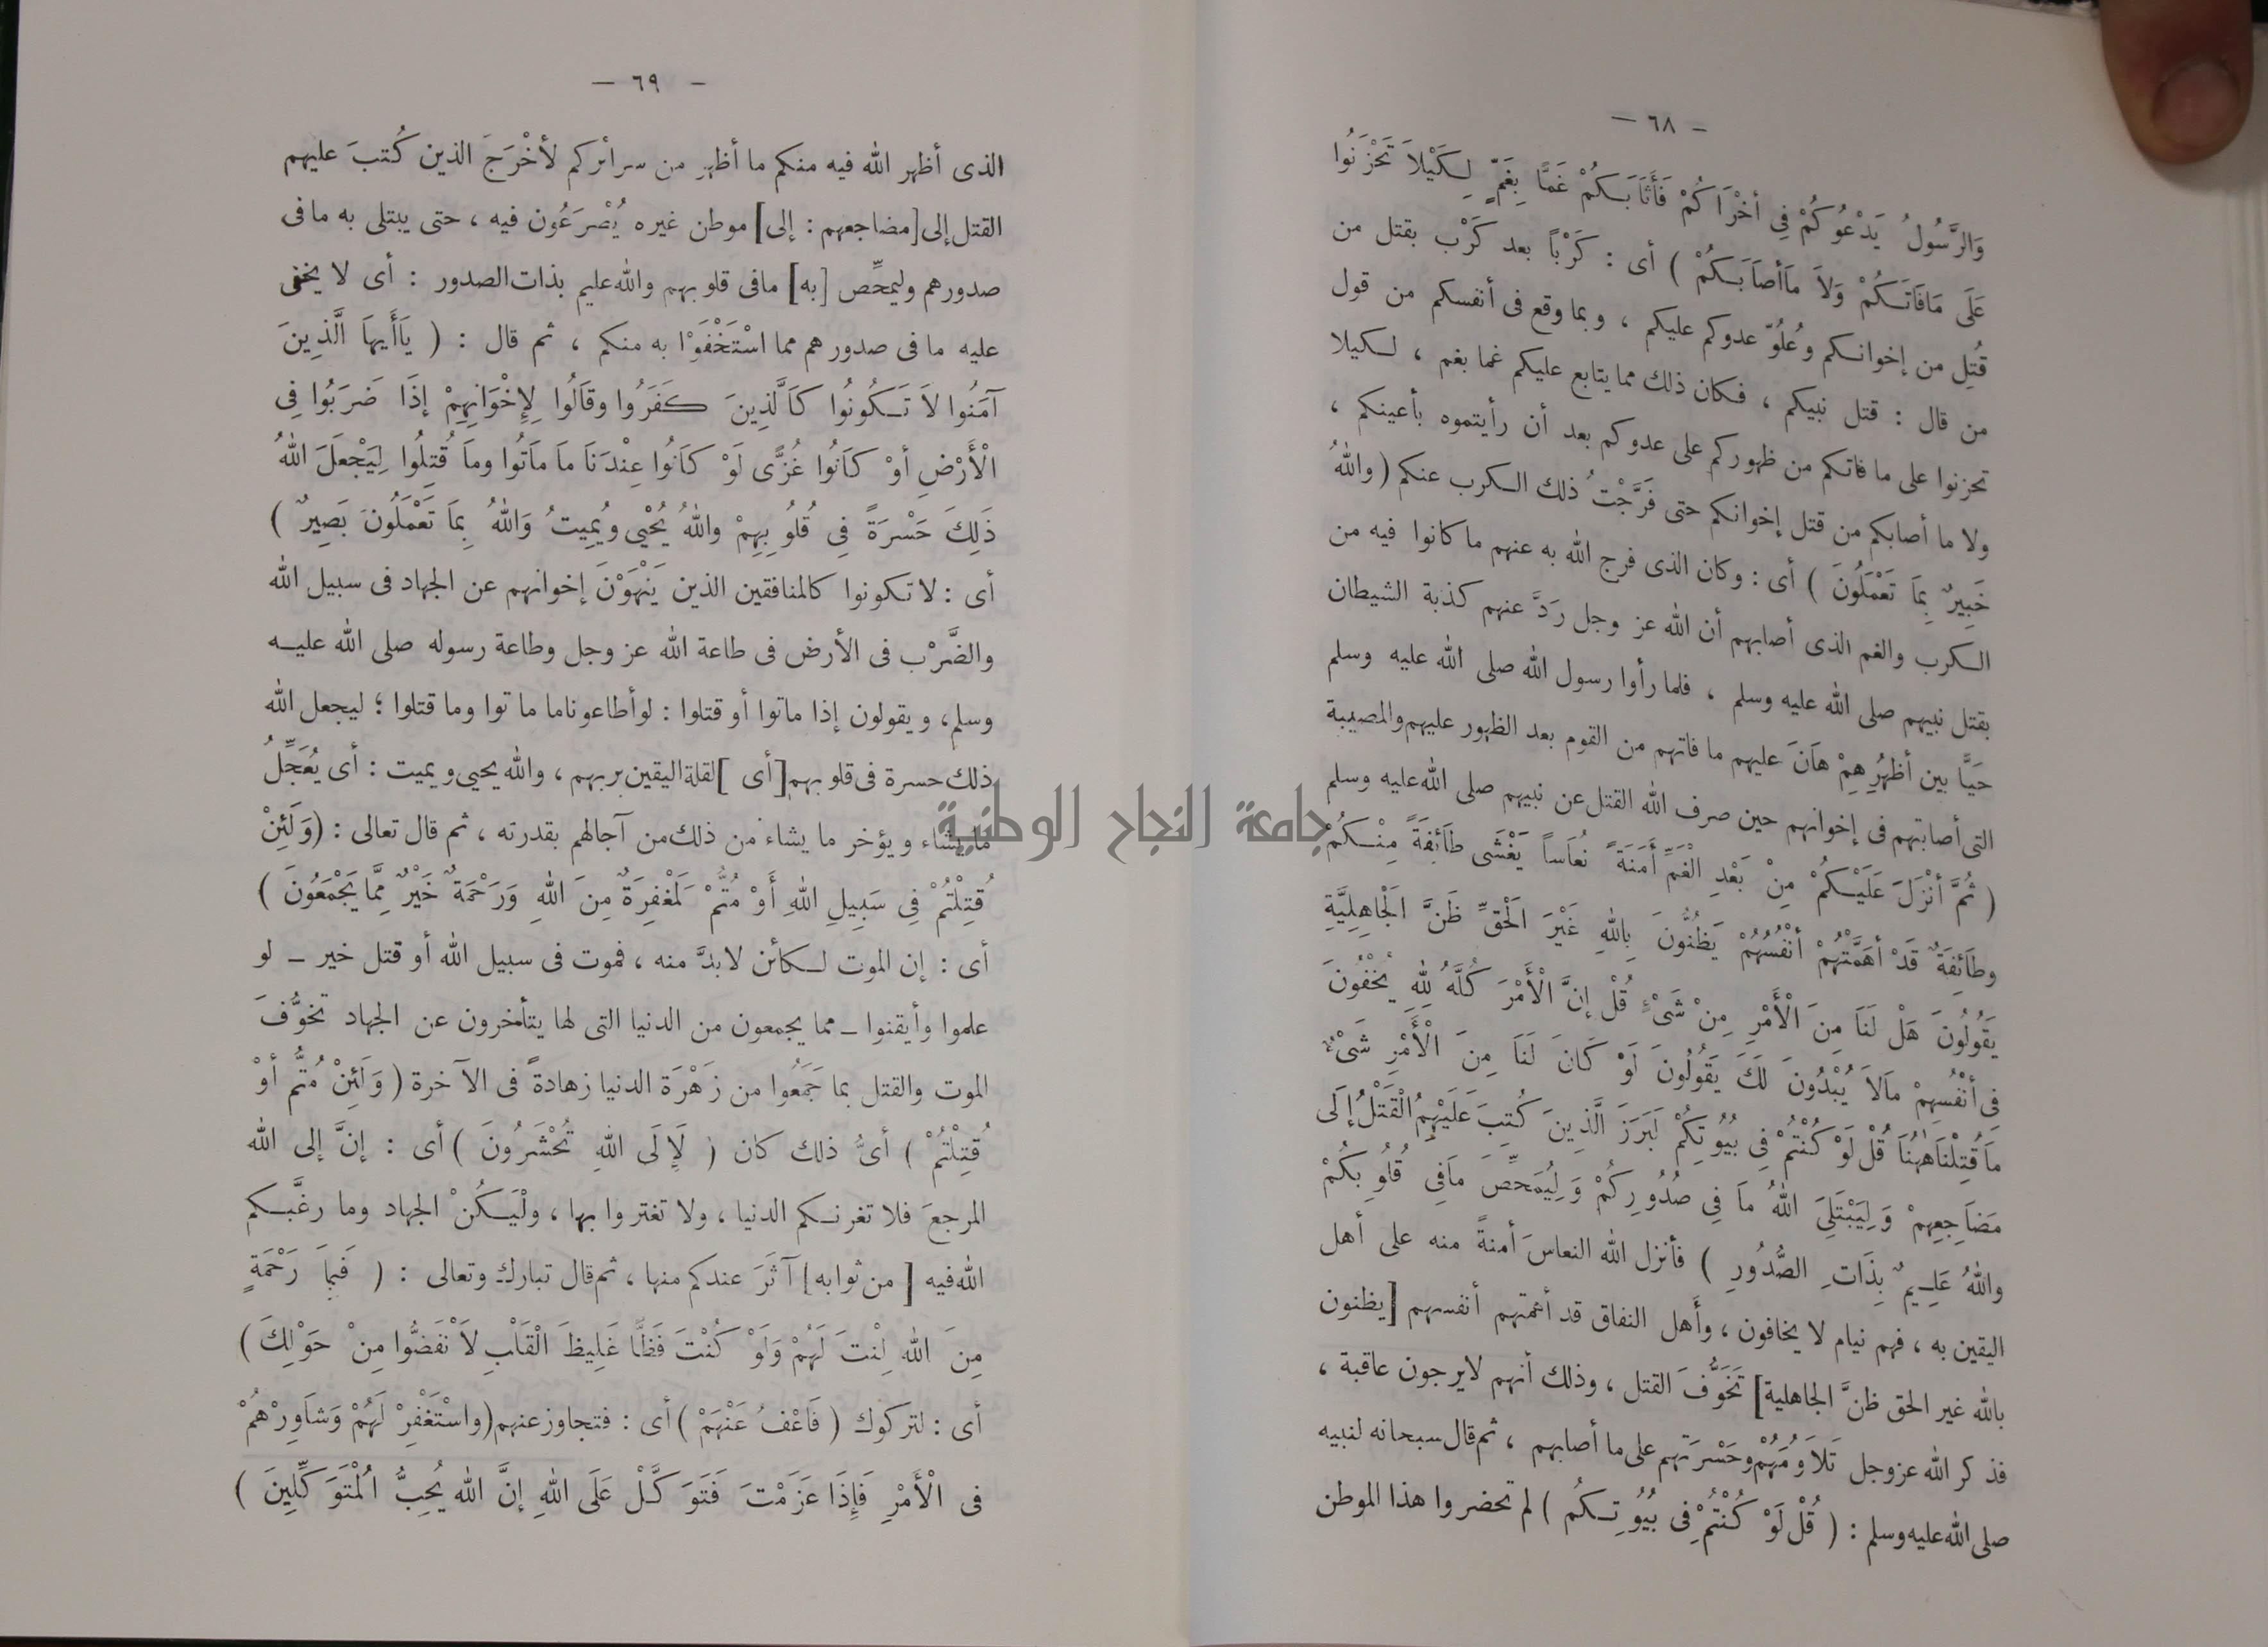 — ٦٨ —
وَالرَّسُولُ يَدْعُوكُمْ فِي أخْرَاكُمْ فَأَثَابَكُمْ غَمًّا بِغَمٍّ لِكَيْلاَ تَحْزَنُوا
عَلَى مَافَاتَكُمْ وَلاَ مَاأصَابَكُمْ ) أى : كَرْباً بعد كَرْب بقتل من
قُتِل من إخوانكم وعُلُوّ عدوكم عليكم ، وبما وقع فى أنفسكم من قول
من قال : قتل نبيكم ، فكان ذلك مما يتابع عليكم غما بغم ، لكيلا
تحزنوا على ما فاتكم من ظهوركم على عدوكم بعد أن رأيتموه بأعينكم ،
ولا ما أصابكم من قتل إخوانكم حتى فَرَّجْتُ ذلك الكرب عنكم ( واللهُ
خَبِيرٌ بِمَا تَعْمَلُونَ ) أى : وكان الذى فرج الله به عنهم ما كانوا فيه من
الكرب والغم الذى أصابهم أن الله عز وجل رَدَّ عنهم كذبة الشيطان
بقتل نبيهم صلى الله عليه وسلم ، فلما رأوا رسول الله صلى الله عليه وسلم
حَيًّا بين أظهُرِهِمْ هَانَ عليهم ما فاتهم من القوم بعد الظهور عليهم والمصيبة
التى أصابتهم فى إخوانهم حين صرف الله القتل عن نبيهم صلى الله عليه وسلم
( ثُمَّ أنْزَلَ عَلَيْكُمْ مِنْ بَعْدِ الْغَمِّ أَمَنَةً نُعَاساً يَغْشَى طَائِفَةً مِنْكُمْ
وطَائِفَةٌ قَدْ أهَمَّتْهُمْ أنْفُسُهُمْ يَظُنُّونَ بِاللهِ غَيْرَ الْحَقِّ ظَنَّ الْجَاهِلِيَّةِ
يَقُولُونَ هَلْ لَنَا مِنَ الْأَمْرِ مِنْ شَىْءٍ قُلْ إنَّ الْأَمْرَ كُلَّهُ لِلهِ يُخْفُونَ
فِى أنْفُسِهِمْ مَالاَ يُبْدُونَ لَكَ يَقُولُونَ لَوْ كَانَ لَنَا مِنَ الْأَمْرِ شَىْءٌ
مَا قُتِلْنَا هَاهُنَا قُلْ لَوْ كُنْتُمْ فِى بُيُوتِكُمْ لَبَرَزَ الَّذِينَ كُتِبَ عَلَيْهِمُ الْقَتْلُ إلَى
مَضَاجِعِهِمْ وَلِيَبْتَلِىَ اللهُ مَا فِى صُدُورِكُمْ وَلِيُمَحِّصَ مَافِى قُلُوبِكُمْ
واللهُ عَلِيمٌ بِذَاتِ الصُّدُورِ ) فأنزل الله النعاسَ أمنةً منه على أهل
اليقين به ، فهم نيام لا يخافون ، وأهل النفاق قد أهمتهم أنفسهم [يظنون
بالله غير الحق ظنَّ الجاهلية] تَخَوُّفَ القتل ، وذلك أنهم لايرجون عاقبة ،
فذكر الله عزوجل تَلاَوُمَهُمْ وحَسْرَتهم على ما أصابهم ، ثم قال سبحانه لنبيه
صلى الله عليه وسلم : ( قُلْ لَوْ كُنْتُمْ فِى بُيُوتِكُم ) لم تحضروا هذا الموطن
— ٦٩ —
الذى أظهر الله فيه منكم ما أظهر من سرائركم لأخْرَجَ الذين كُتبَ عليهم
القتل إلى [مضاجعهم : إلى] موطن غيره يُصْرَعُون فيه ، حتى يبتلى به ما فى
صدورهم وليمحِّص [به] مافى قلوبهم والله عليم بذات الصدور : أى لا يخفى
عليه ما فى صدورهم مما اسْتَخْفَوْا به منكم ، ثم قال : ( يَاأَيهَا الَّذِينَ
آمَنُوا لاَ تَكُونُوا كَالَّذِينَ كَفَرُوا وقَالُوا لِإِخْوَانِهِمْ إذَا ضَرَبُوا فِى
الْأَرْضِ أوْ كَانُوا غُزًّى لَوْ كَانُوا عِنْدَنَا مَا مَاتُوا ومَا قُتِلُوا لِيَجْعلَ اللهُ
ذَلِكَ حَسْرَةً فِى قُلُوبِهِمْ واللهُ يُحْيِى ويُمِيتُ وَاللهُ بِمَا تَعْمَلُونَ بَصِيرٌ )
أى : لا تكونوا كالمنافقين الذين يَنْهَوْنَ إخوانهم عن الجهاد فى سبيل الله
والضَّرْب فى الأرض فى طاعة الله عز وجل وطاعة رسوله صلى الله عليه
وسلم، ويقولون إذا ماتوا أو قتلوا : لو أطاعونا ما ماتوا وما قتلوا ؛ ليجعل الله
ذلك حسرة فى قلوبهم [أى ] لقلة اليقين بربهم ، والله يحيى ويميت : أى يُعَجِّلُ
ما يشاء ويؤخر ما يشاء من ذلك من آجالهم بقدرته ، ثم قال تعالى : (وَلَئِنْ
قُتِلْتُمْ فِى سَبِيلِ اللهِ أَوْ مُتُّمْ لَمَغْفِرَةٌ مِنَ اللهِ وَرَحْمَةٌ خَيْرٌ مِمَّا يَجْمَعُونَ )
أى : إن الموت لكائن لابدَّ منه ، فموت فى سبيل الله أو قتل خير ــ لو
علموا وأيقنوا ــ مما يجمعون من الدنيا التى لها يتأخرون عن الجهاد تخوُّفَ
الموت والقتل بما جَمَعُوا من زَهْرَة الدنيا زهادةً فى الآخرة ( وَلَئِنْ مُتُّم أوْ
قُتِلْتُمْ ) أىُّ ذلك كان ( لَإِلَى اللهِ تُحْشَرُونَ ) أى : إنَّ إلى الله
المرجعَ فلا تغرنكم الدنيا ، ولا تغتروا بها ، ولْيَكُنْ الجهاد وما رغَّبكم
الله فيه [ من ثوابه] آثَرَ عندكم منها ، ثم قال تبارك وتعالى : ( فَبِمَا رَحْمَةٍ
مِنَ اللهِ لِنْتَ لَهُمْ وَلَوْ كُنْتَ فَظًّا غَلِيظَ الْقَلْبِ لاَنْفَضُّوا مِنْ حَوْلِكَ )
أى : لتركوك ( فَاعْفُ عَنْهَمْ ) أى : فتجاوز عنهم (واسْتَغْفِرْ لَهُمْ وَشَاوِرْهمُْ
فى الْأَمْرِ فَإِذَا عَزَمْتَ فَتَوَكَّلْ عَلَى اللهِ إنَّ الله يُحِبُّ الْمُتَوَكِّلِينَ )
جامعة النجاح الوطنية